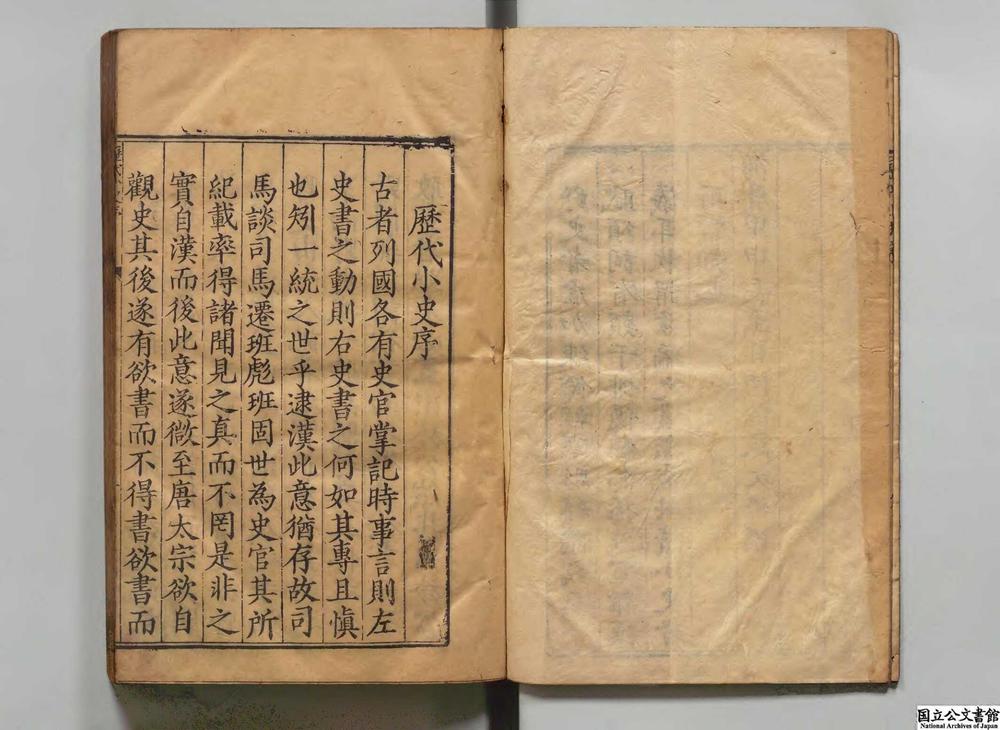 歷代小史序
古者列國各有史官掌記時事言則左
史書之動則右史書之何如其專且愼
也矧一統之世乎逮漢此意猶存故司
馬談司馬遷班彪班固世為史官其所
紀載率得諸聞見之真而不罔是非之
實自漢而後此意遂微至唐太宗欲自
觀史其後遂有欲書而不得書欲書而
国立公文書館
National Archives of Japan